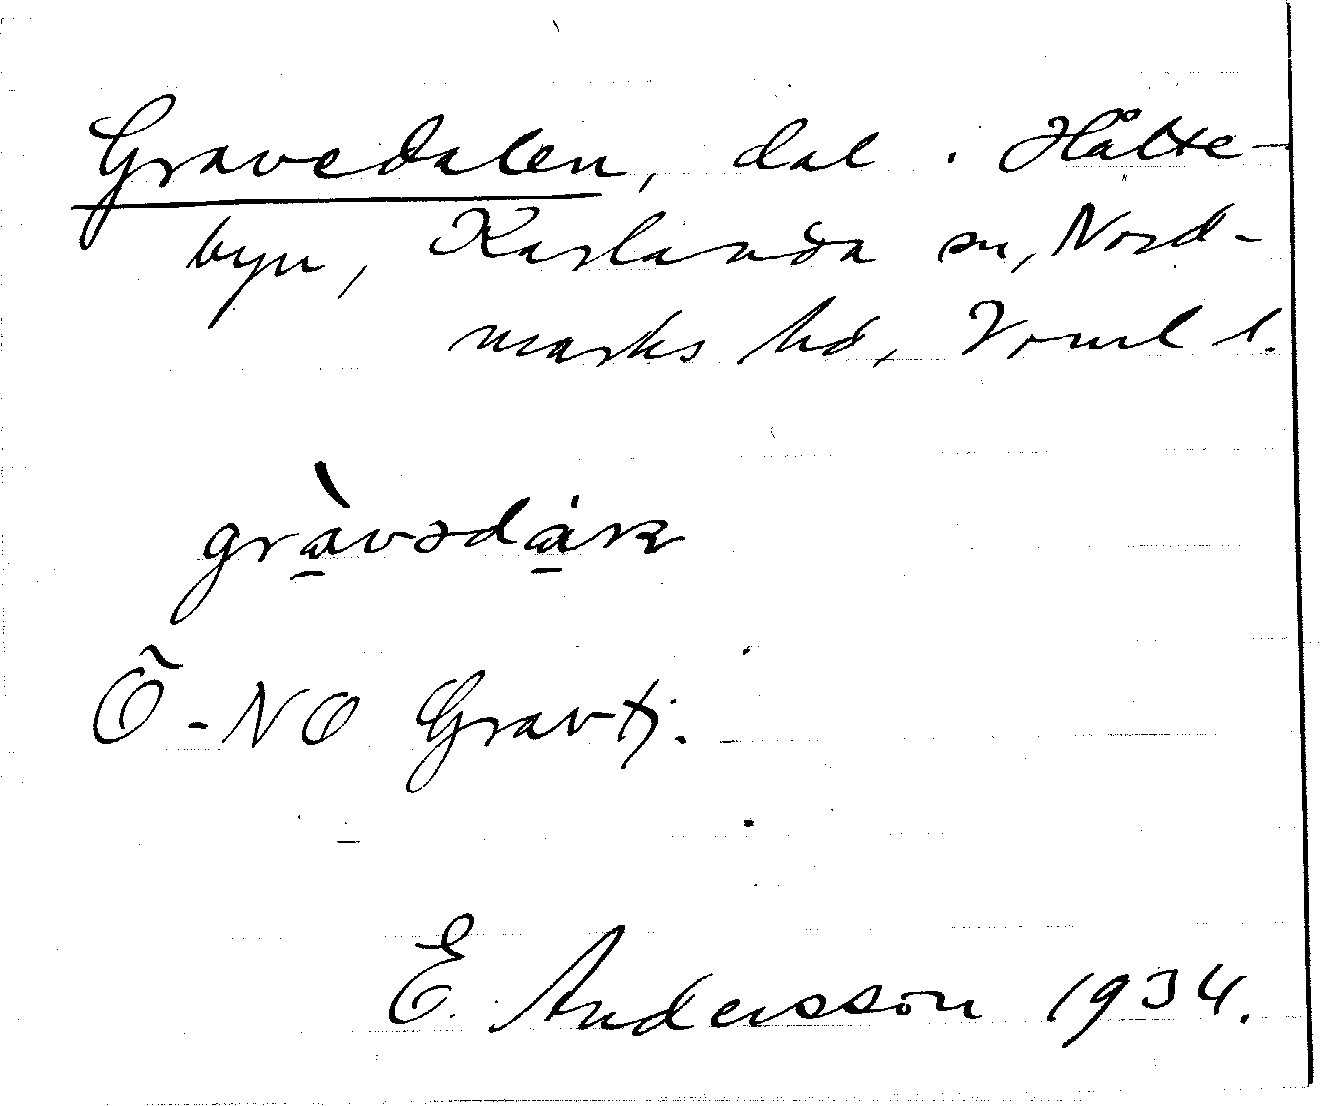 Gravedalen, dal i Hålte-
byn, Karlanda sn, Nord-
marks hd, Vrml l.
gràvədáɳ
Ö-NO Gravtj.
E. Andersson 1934.